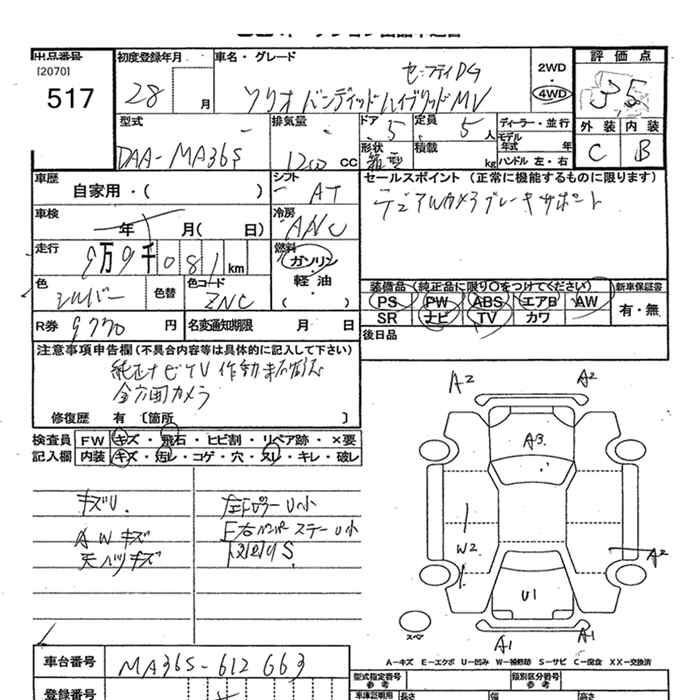 出品番号
[2070]
517
初度登録年月
28 月
車名・グレード
セーフティPG
ソリオ バンディッドハイブリッドMV
2WD
・
4WD
評価点
3.5
外装 内装
C B
型式
DAA-MA36S
排気量
1200 cc
ドア
5
形状
箱型
定員
5人
積載
kg
ディーラー・並行
モデル
年式 年
ハンドル 左・右
車歴
自家用・( )
シフト
AT
セールスポイント(正常に機能するものに限ります)
デュアルカメラブレーキサポート
車検
年 月( 日)
冷房
走行
9万9千081km
燃料
ガソリン
軽油
・( )
色
シルバー
色替
色コード
ZNC
装備品(純正品に限り○をつけてください)
PS PW ABS エアB AW
SR ナビ TV カワ
新車保証書
有・無
R券 9770 円
名変通知期限 月 日
後日品
注意事項申告欄(不具合内容等は具体的に記入して下さい)
純正ナビTV 作動未確認
全方囲カメラ
修復歴 有 〔箇所 〕
検査員 FW キズ・飛石・ヒビ割・リペア跡・×要
記入欄 内装 キズ・汚レ・コゲ・穴・スレ・キレ・破レ
キズU.
AWキズ
天バリキズ
左ドアミラーU小
F右バンパーステーU小
下回りS.
A2 A2
A3
W2
A2
U1
A1 A1
スペア
A-キズ E-エクボ U-凹み W-補修跡 S-サビ C-腐食 XX-交換済
車台番号
MA36S-612663
登録番号
型式指定番号
参考
類別区分番号
参考
車庫証明用
長さ 幅 高さ